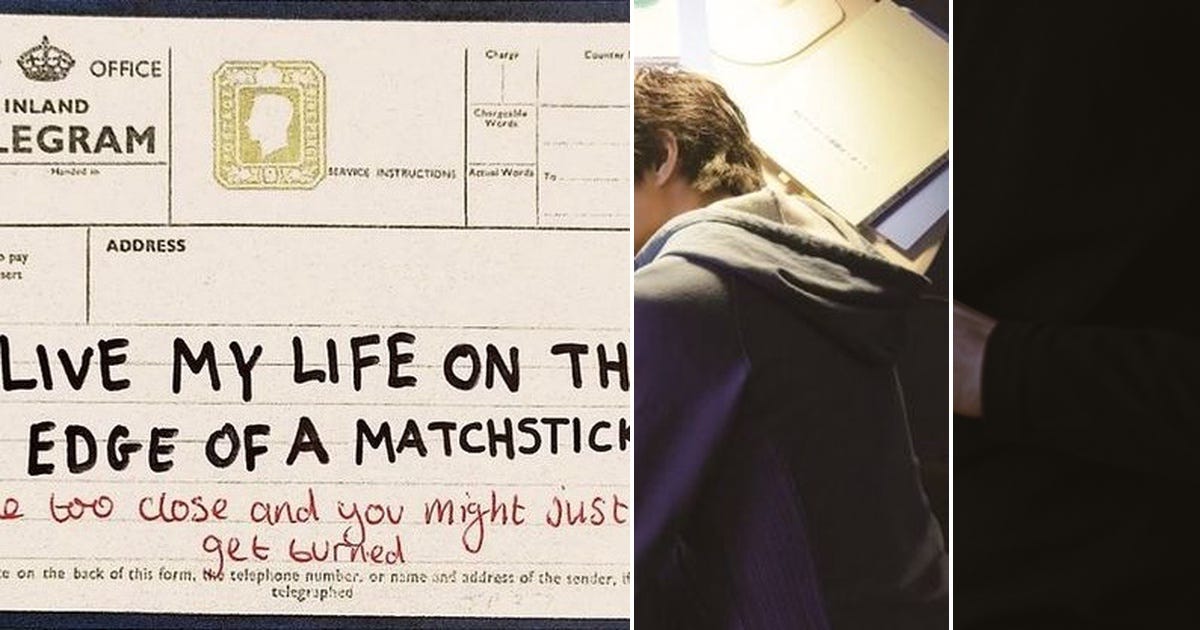 OFFICE
INLAND
LEGRAM
Handed in
SERVICE INSTRUCTIONS
Charge
Chargeable
Words
Actual Words
Country
To
ADDRESS
pay
LIVE MY LIFE ON TH
EDGE OF A MATCHSTICK
e too close and you might just
get burned
e on the back of this form, the telephone number, or name and address of the sender, if
telegraphed